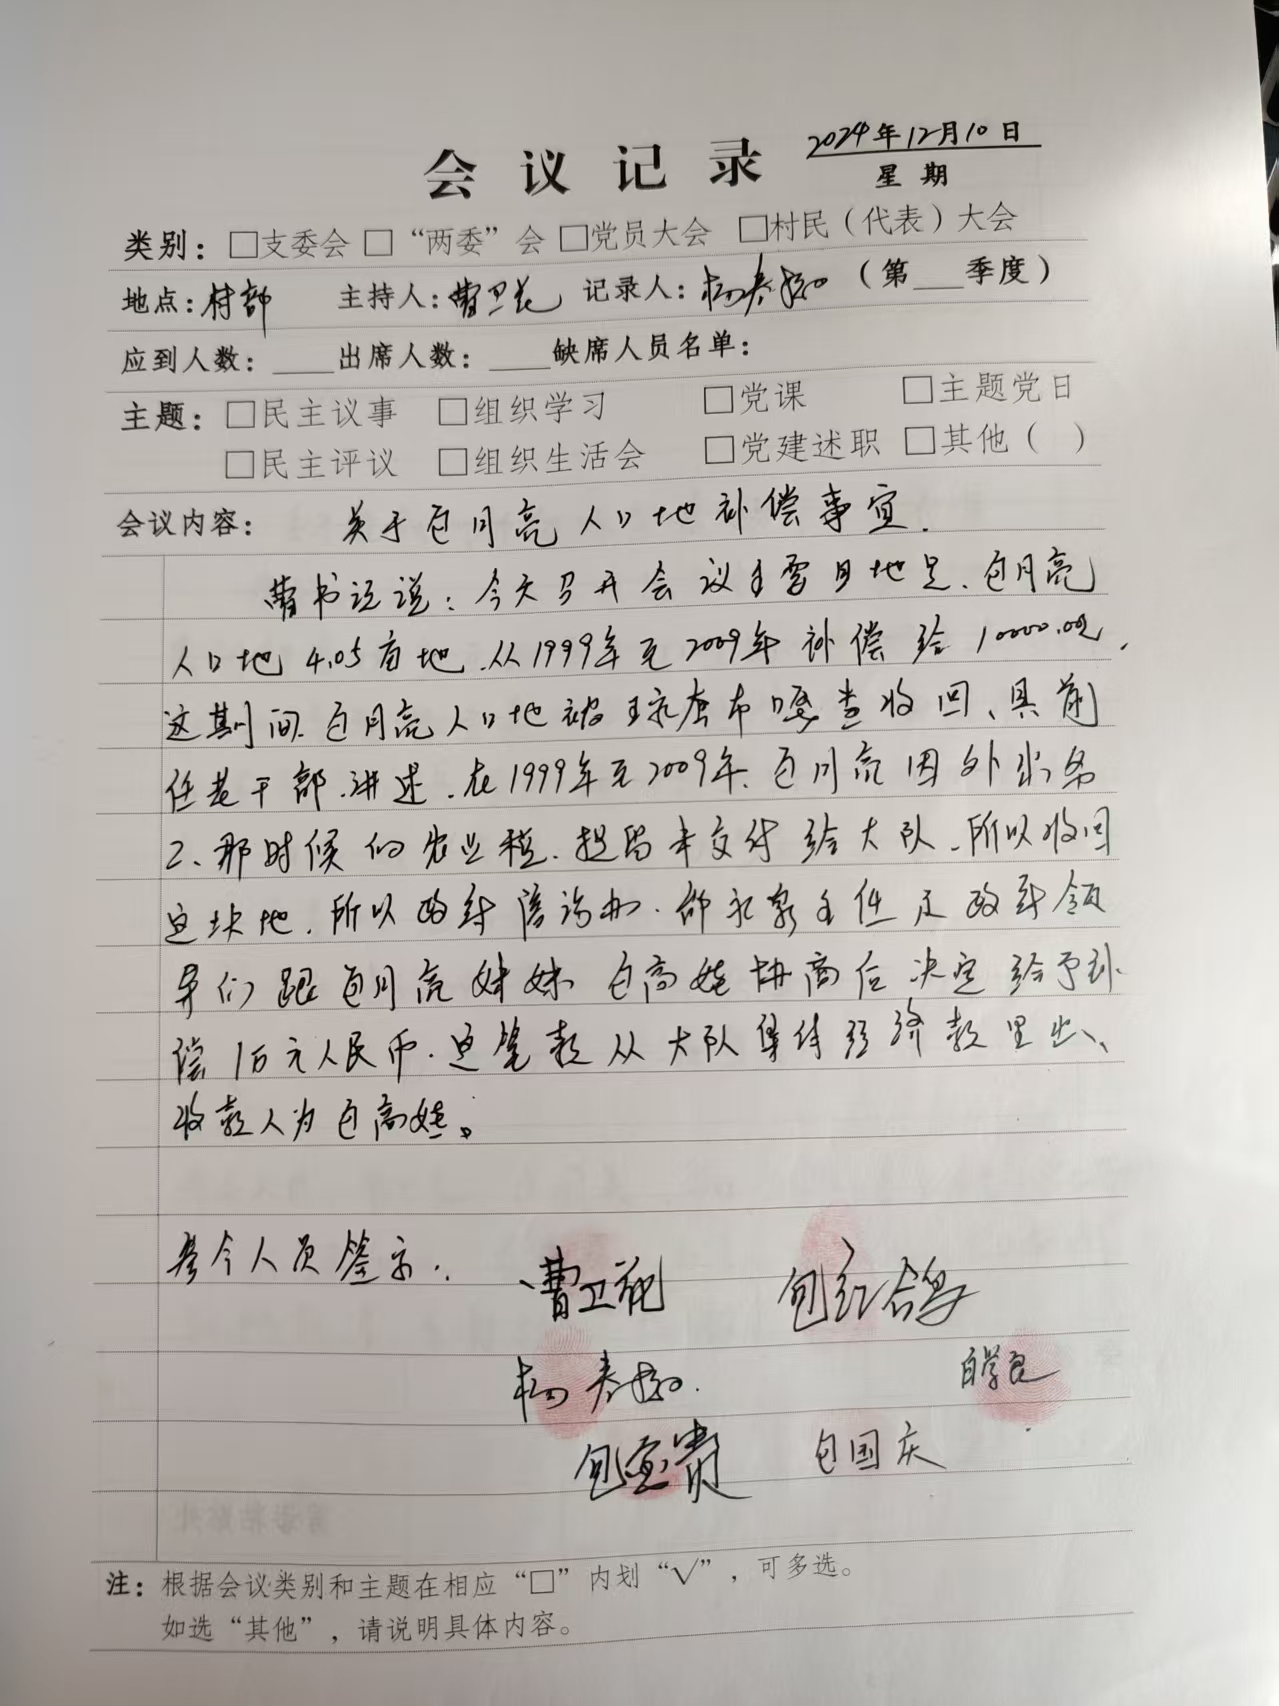 会议记录 2024年12月10日
星期
类别：□支委会 □“两委”会 □党员大会 □村民（代表）大会
地点：村部 主持人：曹卫 记录人：杨春 （第___季度）
应到人数：____出席人数：____缺席人员名单：
主题：□民主议事 □组织学习 □党课 □主题党日
□民主评议 □组织生活会 □党建述职 □其他（ ）
会议内容： 关于包月亮人口地补偿事宜.
曹书记说：今天召开会议主要目地是、包月亮
人口地4.05亩地.从1999年至2009年补偿给10000.00元，
这期间.包月亮人口地被 嘎查收回、具前
任老干部.讲述.在1999年至2009年.包月亮因外出务
2、那时候的农业税.提留未交付给大队.所以收回
这块地.所以政府信访办.部永泉主任及政府领
导们跟包月亮妹妹 包高娃协商后决定给予补
偿1万元人民币.这笔款从大队集体经济款里出、
收款人为包高娃。
参会人员签字：
曹卫 包红鸽
杨春 白学良
包宝贵 包国庆
注：根据会议类别和主题在相应“□”内划“√”，可多选。
如选“其他”，请说明具体内容。